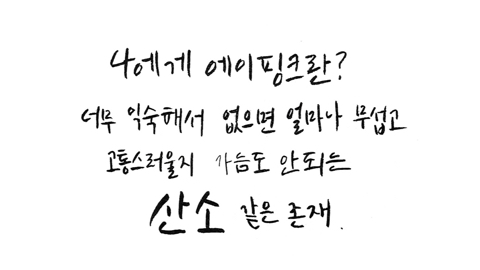 나에게 에이핑크란?
너무 익숙해서 없으면 얼마나 무섭고
고통스러울지 가늠도 안되는
산소 같은 존재.